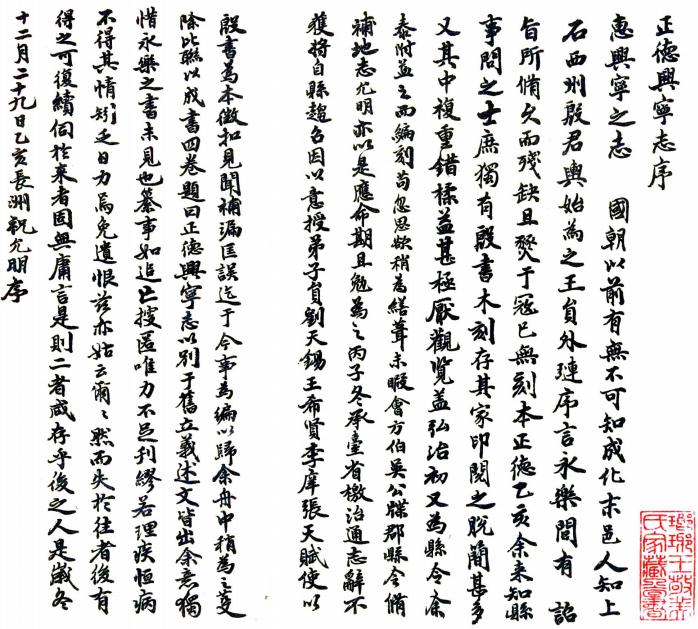 正德興寧志序
惠興寧之志　國朝以前有無不可知成化末邑人知上
石西州殷君輿始為之王員外璉序言永樂間有　詔
旨所脩久而殘缺且燹于寇已無刻本正德乙亥余来知縣
事問之士庶獨有殷書木刻存其家印閱之脫簡甚多
又其中複重錯糅益甚極厭觀覽蓋弘治初又為縣令余
泰附益之而編刻苟忽思欲稍為繕葺未暇會方伯吳公牒郡縣令脩
補地志允明亦以是應命期且勉為之丙子冬承臺省檄治通志辭不
獲將自縣趨召因以意授弟子員劉天錫王希賢李庠張天賦使以
殷書為本徵扣見聞補漏匡誤迄于今事為編以歸余舟中稍為之芟
除比聯以成書四卷題曰正德興寧志以別于舊立義述文皆出余意獨
惜永樂之書未見也纂事如追亡搜匿唯力不足刊繆若理疾恒病
不得其情矧乏日力烏免遺恨茲亦姑云爾〻然而失於往者後有
得之可復續伺於來者固無庸言是則二者咸存乎後之人是歲冬
十二月二十九日乙亥長洲祝允明序
瑯琊王敬美
氏家藏圖書